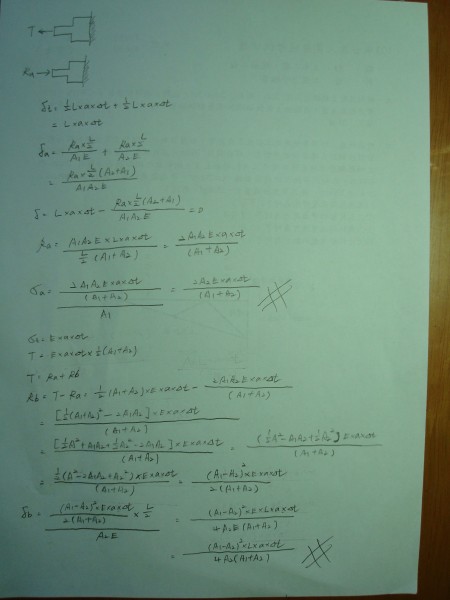 T
Ra
δt = ½L×α×Δt + ½L×α×Δt
= L×α×Δt
δa = Ra×L/2 / A1E + Ra×L/2 / A2E
= Ra×L/2 (A2+A1) / A1A2E
δ = L×α×Δt - Ra×L/2 (A2+A1) / A1A2E = 0
Ra = A1A2E×L×α×Δt / L/2 (A1+A2) = 2A1A2E×α×Δt / (A1+A2)
σa = 2A1A2E×α×Δt / (A1+A2) / A1 = 2A2E×α×Δt / (A1+A2)
σt = E×α×Δt
T = E×α×Δt×½(A1+A2)
T = Ra+Rb
Rb = T-Ra = ½(A1+A2)×E×α×Δt - 2A1A2E×α×Δt / (A1+A2)
= [½(A1+A2)² - 2A1A2]×E×α×Δt / (A1+A2)
= [½A1²+A1A2+½A2²-2A1A2]×E×α×Δt / (A1+A2) = (½A1²-A1A2+½A2²)E×α×Δt / (A1+A2)
= ½(A1²-2A1A2+A2²)×E×α×Δt / (A1+A2) = (A1-A2)²×E×α×Δt / 2(A1+A2)
δb = (A1-A2)²×E×α×Δt / 2(A1+A2) × L/2 / A2E = (A1-A2)²×E×L×α×Δt / 4A2E(A1+A2)
= (A1-A2)²×L×α×Δt / 4A2(A1+A2)